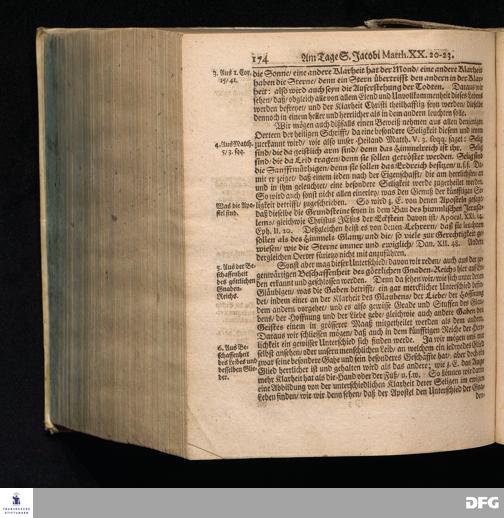 174 Am Tage S. Jacobi Matth. XX. 20-23.
3. Aus 1. Cor. 15/41.
die Sonne/ eine andere Klarheit hat der Mond/ eine andere Klarheit
haben die Sterne/ denn ein Stern übertrifft den andern in der Klar-
heit: also wird auch seyn die Auferstehung der Todten. Daraus wir
sehen/ daß/ obgleich alle von allem Elend und Unvollkommenheit dieses Lebens
werden befreyet/ und der Klarheit Christi theilhafftig seyn werden/ dieselbe
dennoch in einem heller und herrlicher als in dem andern leuchten solle.
Wir mögen auch dißfalls einen Beweiß nehmen aus allen denjenigen
Oertern der heiligen Schrifft/ da eine besondere Seligkeit diesem und jenem
4. Aus Matth. 5/3. sqq.
zuerkannt wird/ wie also unser Heiland Matth. V. 3. seqq. saget: Selig
sind/ die da geistlich arm sind/ denn das Himmelreich ist ihr. Selig
sind/ die da Leid tragen/ denn sie sollen getröstet werden. Selig sind
die Sanfftmüthigen/ denn sie sollen das Erdreich besitzen/ u.s.f. Da-
mit er zeiget/ daß einem ieden nach der Eigenschafft/ die am herrlichsten an
und in ihm geleuchtet/ eine besondere Seligkeit werde zugetheilet werden.
So wird auch sonst nicht allen einerley/ was den Genuß der künfftigen Se-
Was die Apo- stel sind.
ligkeit betrifft/ zugeschrieben. So wird z. E. von denen Aposteln gesagt/
daß dieselbe die Grundsteine seyn in dem Bau des himmlischen Jerusa-
lems/ gleichwie Christus JEsus der Eckstein davon ist/ Apocal. XXI. 14.
Eph. II. 20. Deßgleichen heist es von denen Lehrern/ daß sie leuchten
sollen als des Himmels Glantz/ und die/ so viele zur Gerechtigkeit ge-
wiesen/ wie die Sterne immer und ewiglich/ Dan. XII. 48. Ander
dergleichen Oerter für ietzo nicht mit anzuführen.
5. Aus der Be- schaffenheit des göttlichen Gnaden- Reichs.
Sonst aber mag dieser Unterscheid/ davon wir reden/ auch aus der ge-
genwärtigen Beschaffenheit des göttlichen Gnaden-Reichs hier auf Er-
den erkannt und geschlossen werden. Denn da sehen wir/ wie sich unter denen
Gläubigen/ was die Gaben betrifft/ ein gar mercklicher Unterscheid befin-
det/ indem einer an der Klarheit des Glaubens/ der Liebe/ der Hoffnung
dem andern vorgehet/ und es also gewisse Grade und Stuffen des Glau-
bens/ der Hoffnung und der Liebe gebe/ gleichwie auch andere Gaben des
Geistes einem in grösserer Maaß mitgetheilet werden als dem andern.
Daraus wir schliessen mögen/ daß auch in dem künfftigen Reiche der Herr-
lichkeit ein gewisser Unterscheid sich finden werde. Ja wir mögen uns nur
6. Aus Be- schaffenheit des Leibes und desselben Glie- der.
selbst ansehen/ oder unsern menschlichen Leib/ an welchem ein iedwedes Glied
zwar seine besondere Gabe und sein besonderes Geschäffte hat/ aber doch ein
Glied herrlicher ist und gehalten wird als das andere; wie z. E. das Auge
mehr Klarheit hat als die Hand oder der Fuß/ u.s.w. So können wir darin
eine Abbildung von der unterschiedlichen Klarheit derer Seligen im ewigen
Leben finden/ wie wir denn sehen/ daß der Apostel den Unterschied der Gna-
den-
FRANCKESCHE STIFTUNGEN
DFG